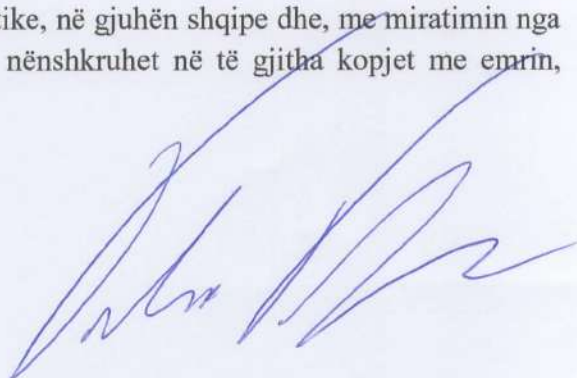 tike, në gjuhën shqipe dhe, me miratimin nga
nënshkruhet në të gjitha kopjet me emrin,